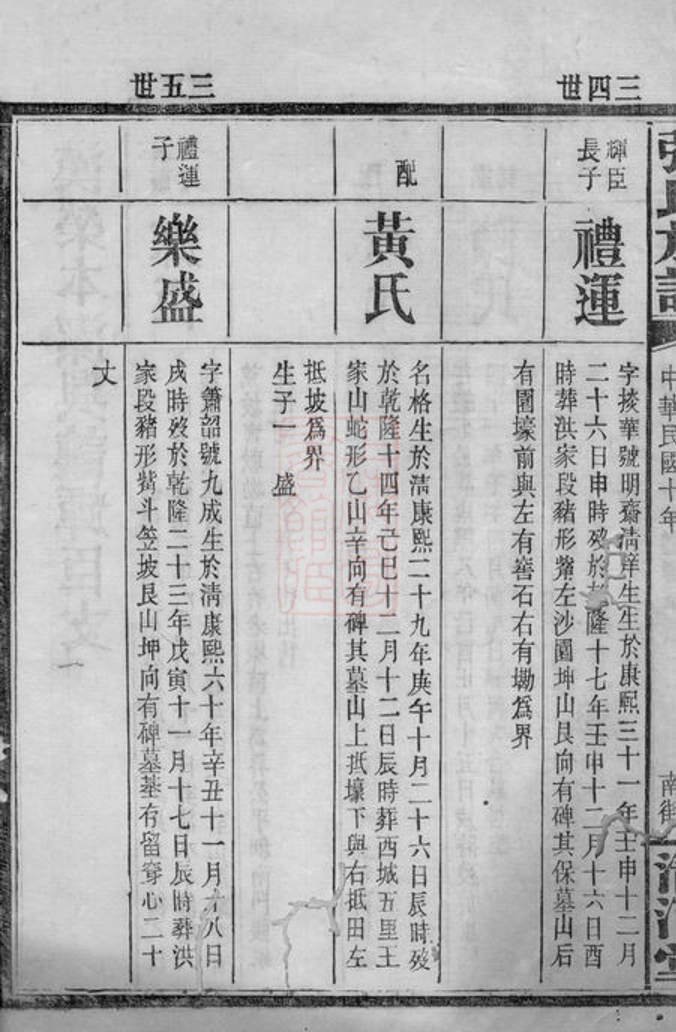 中華民國十年
南街
三四世
輝臣
長子
禮運
字掞華號明齋淸庠生生於康熙三十一年壬申十二月
二十六日申時歿於乾隆十七年壬申十二月十六日酉
時葬洪家段豬形觜左沙園坤山艮向有碑其保墓山后
有圍壕前與左有窖石右有墈爲界
配
黃氏
名格生於淸康熙二十九年庚午十月二十六日辰時歿
於乾隆十四年己巳十二月十二日辰時葬西城五里王
家山蛇形乙山辛向有碑其墓山上抵壕下與右抵田左
抵坡爲界
生子一 盛
三五世
禮運
子
樂盛
字簫韶號九成生於淸康熙六十年辛丑十一月十八日
戌時歿於乾隆二十三年戊寅十一月十七日辰時葬洪
家段豬形觜斗笠坡艮山坤向有碑墓基存留穿心二十
丈